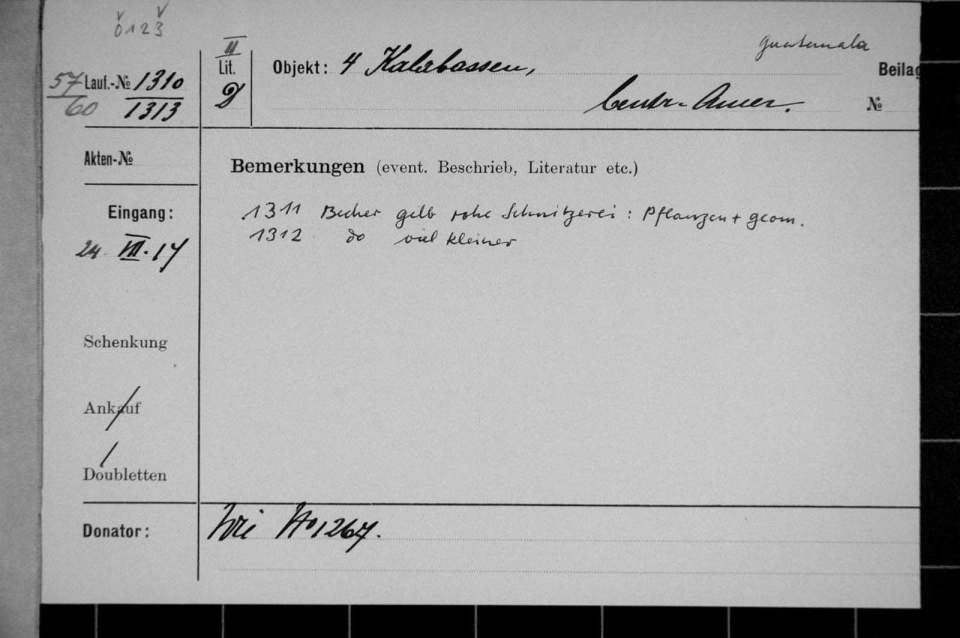 0 1 2 3
II
Guatemala
57 Lauf.-№ 1310 Lit. Objekt: 4 Kalabassen, Beilag
60 1313 D Centr. Amer. №
Akten-№
Bemerkungen (event. Beschrieb, Literatur etc.)
Eingang: 1311 Becher gelb rohe Schnitzerei: Pflanzen + geom.
1312 do viel kleiner
24. VII. 17
Schenkung
Ankauf
Doubletten
Donator: Wie No 1267.